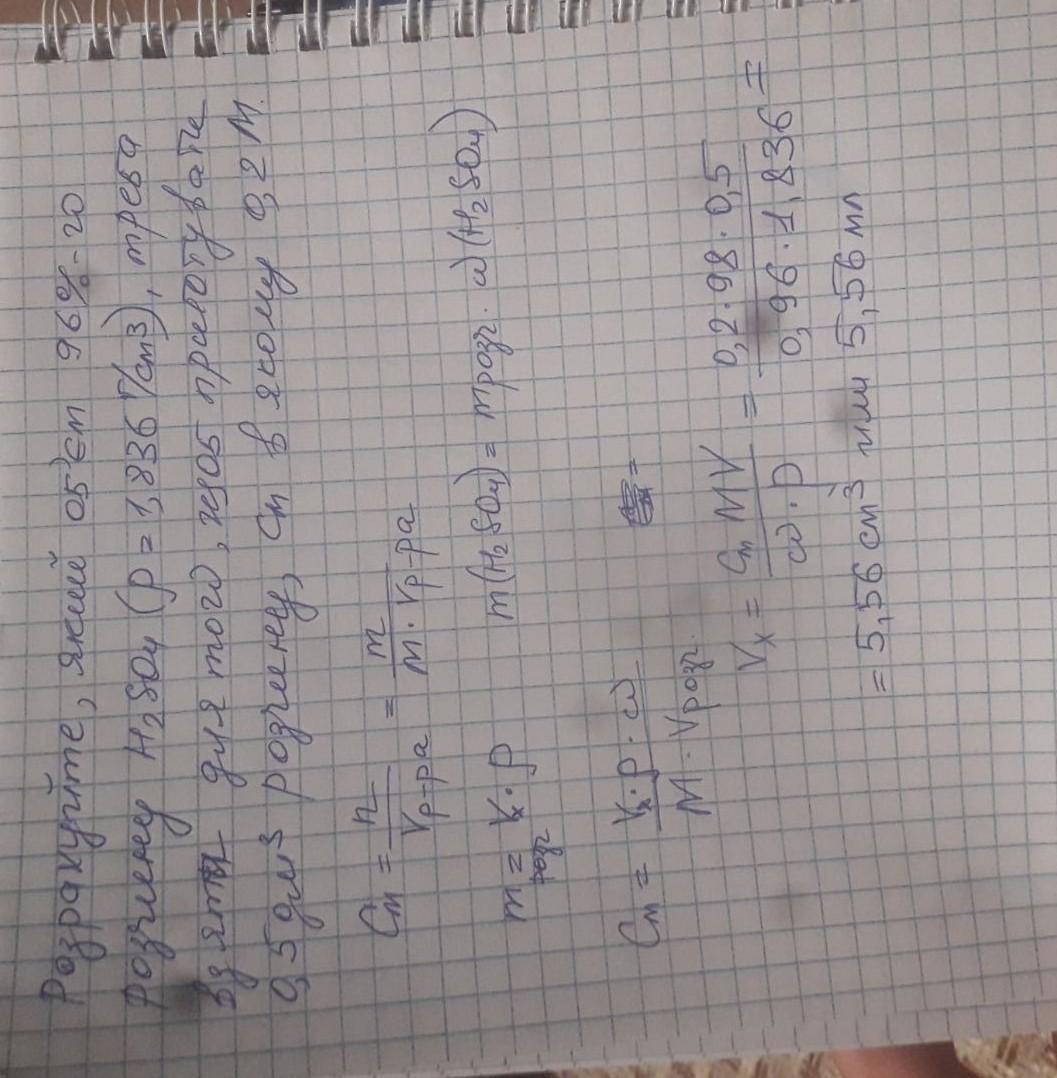 Розрахуйте, який об'єм 96%-го
розчину H₂SO₄ (ρ = 1,836 г/см3), треба
взяти для того, щоб приготувати
0,5 дм³ розчину, Cм в якому 0,2 М.
Cм = n / Vр-ра = m / M · Vр-ра
m розг = Vx · ρ m(H₂SO₄) = mрозг. · ω(H₂SO₄)
Cм = Vx · ρ · ω / M · Vрозг.
Vx = Cм MV / ω · ρ = 0,2 · 98 · 0,5 / 0,96 · 1,836 =
= 5,56 см³ или 5,56 мл